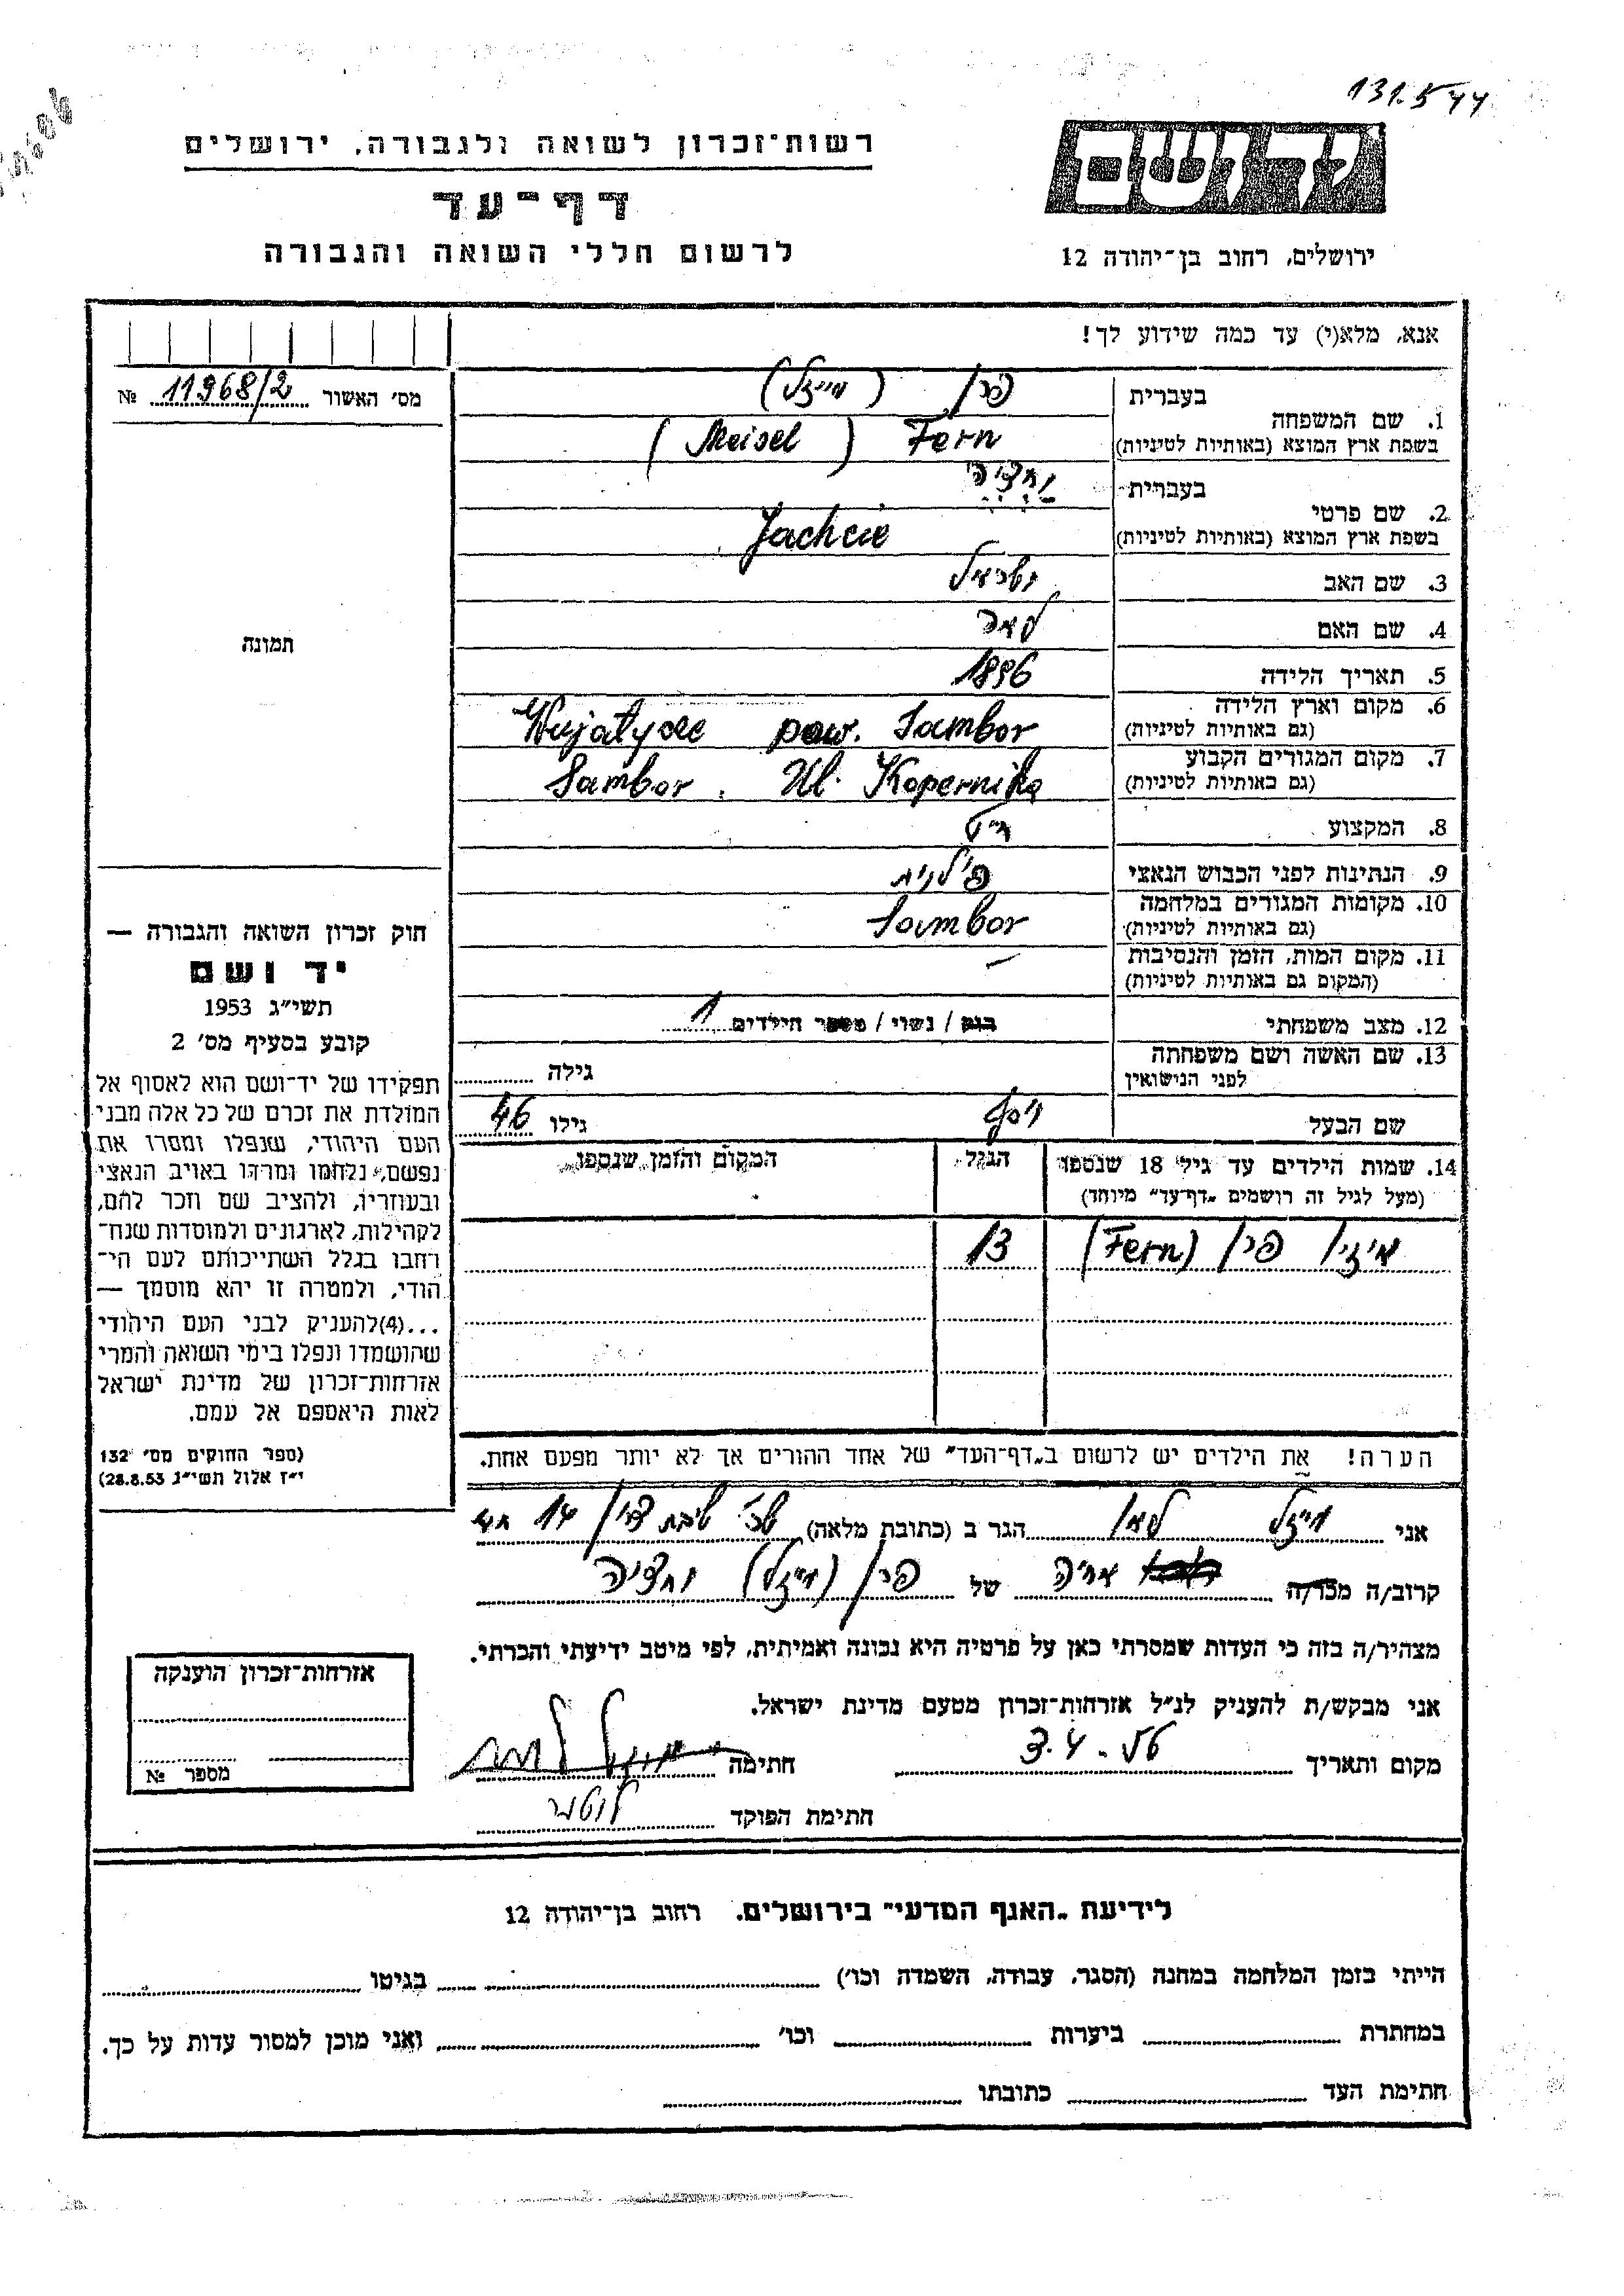 131.544
יד ושם
רשות־זכרון לשואה ולגבורה, ירושלים
דף־עד
לרשום חללי השואה והגבורה
ירושלים, רחוב בן־יהודה 12
אנא, מלא(י) עד כמה שידוע לך!
מס' האשור 11968/2 №
תמונה
חוק זכרון השואה והגבורה —
יד ושם
תשי״ג 1953
קובע בסעיף מס' 2
תפקידו של יד־ושם הוא לאסוף אל
המולדת את זכרם של כל אלה מבני
העם היהודי, שנפלו ומסרו את
נפשם, נלחמו ומרדו באויב הנאצי
ובעוזריו, ולהציב שם וזכר להם,
לקהילות, לארגונים ולמוסדות שנח־
רחבו בגלל השתייכותם לעם הי־
הודי, ולמטרה זו יהא מוסמך —
...(4)להעניק לבני העם היהודי
שהושמדו ונפלו בימי השואה והמרי
אזרחות־זכרון של מדינת ישראל
לאות היאספם אל עמם.
(ספר החוקים מס' 132
י״ז אלול תשי״ג 28.8.53)
1. שם המשפחה
בעברית פרן (מייזל)
בשפת ארץ המוצא (באותיות לטיניות) Fern (Meisel)
2. שם פרטי
בעברית
בשפת ארץ המוצא (באותיות לטיניות) Jachcie
3. שם האב
4. שם האם לאה
5. תאריך הלידה 1896
6. מקום וארץ הלידה
(גם באותיות לטיניות) pow. Sambor
7. מקום המגורים הקבוע
(גם באותיות לטיניות) Sambor, Ul. Kopernika
8. המקצוע
9. הנתינות לפני הכבוש הנאצי פולנית
10. מקומות המגורים במלחמה
(גם באותיות לטיניות) Sambor
11. מקום המות, הזמן והנסיבות —
(המקום גם באותיות לטיניות)
12. מצב משפחתי רווק / נשוי / מספר הילדים 1
13. שם האשה ושם משפחתה
לפני הנישואין גילה
שם הבעל יוסף גילו 46
14. שמות הילדים עד גיל 18 שנספו הגיל המקום והזמן שנספו
(מעל לגיל זה רושמים „דף־עד״ מיוחד)
פרן (Fern) 13
הערה! את הילדים יש לרשום ב„דף־העד״ של אחד ההורים אך לא יותר מפעם אחת.
אני מייזל הגר ב (כתובת מלאה) 14
קרוב/ה מכר/ה של פרן (מייזל)
מצהיר/ה בזה כי העדות שמסרתי כאן על פרטיה היא נכונה ואמיתית, לפי מיטב ידיעתי והכרתי.
אני מבקש/ת להעניק לנ״ל אזרחות־זכרון מטעם מדינת ישראל.
מקום ותאריך 3.4.56 חתימה
חתימת הפוקד
אזרחות־זכרון הוענקה
מספר №
לידיעת „האגף המדעי״ בירושלים, רחוב בן־יהודה 12
הייתי בזמן המלחמה במחנה (הסגר, עבודה, השמדה וכו') בגיטו
במחתרת ביערות וכו' ואני מוכן למסור עדות על כך.
חתימת העד כתובתו